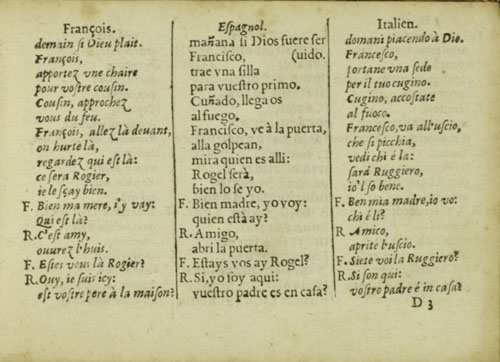 François.
demain ſi Dieu plait.
François,
apportez vne chaire
pour voſtre couſin.
Couſin, approchez
vous du feu.
François, allez là deuant,
on hurte là,
regardez qui eſt là:
ce ſera Rogier,
ie le ſçay bien.
F. Bien ma mere, i'y vay:
Qui eſt là?
R. C'eſt amy,
ouurez l'huis.
F. Eſtes vous là Rogier?
R. Ouy, ie ſuis icy:
eſt voſtre pere à la maiſon?
Eſpagnol.
mañana ſi Dios fuere ſer
Franciſco, (uido.
trae vna ſilla
para vueſtro primo.
Cuñado, llega os
al fuego.
Franciſco, ve à la puerta,
alla golpean,
mira quien es alli:
Rogel ſerà,
bien lo ſe yo.
F. Bien madre, yo voy:
quien eſtà ay?
R. Amigo,
abri la puerta.
F. Eſtays vos ay Rogel?
R. Si, yo ſoy aqui:
vueſtro padre es en caſa?
Italien.
domani piacendo à Dio.
Franceſco,
portane vna ſede
per il tuo cugino.
Cugino, accoſtate
al fuoco.
Franceſco, va all'uſcio,
che ſi picchia,
vedi chi é la:
ſarà Ruggiero,
io'l ſo bene.
F. Ben mia madre, io vo:
chi é li?
R. Amico,
aprite l'uſcio.
F. Siete voi la Ruggiero?
R. Si ſon qui:
voſtro padre é in caſa?
D 3